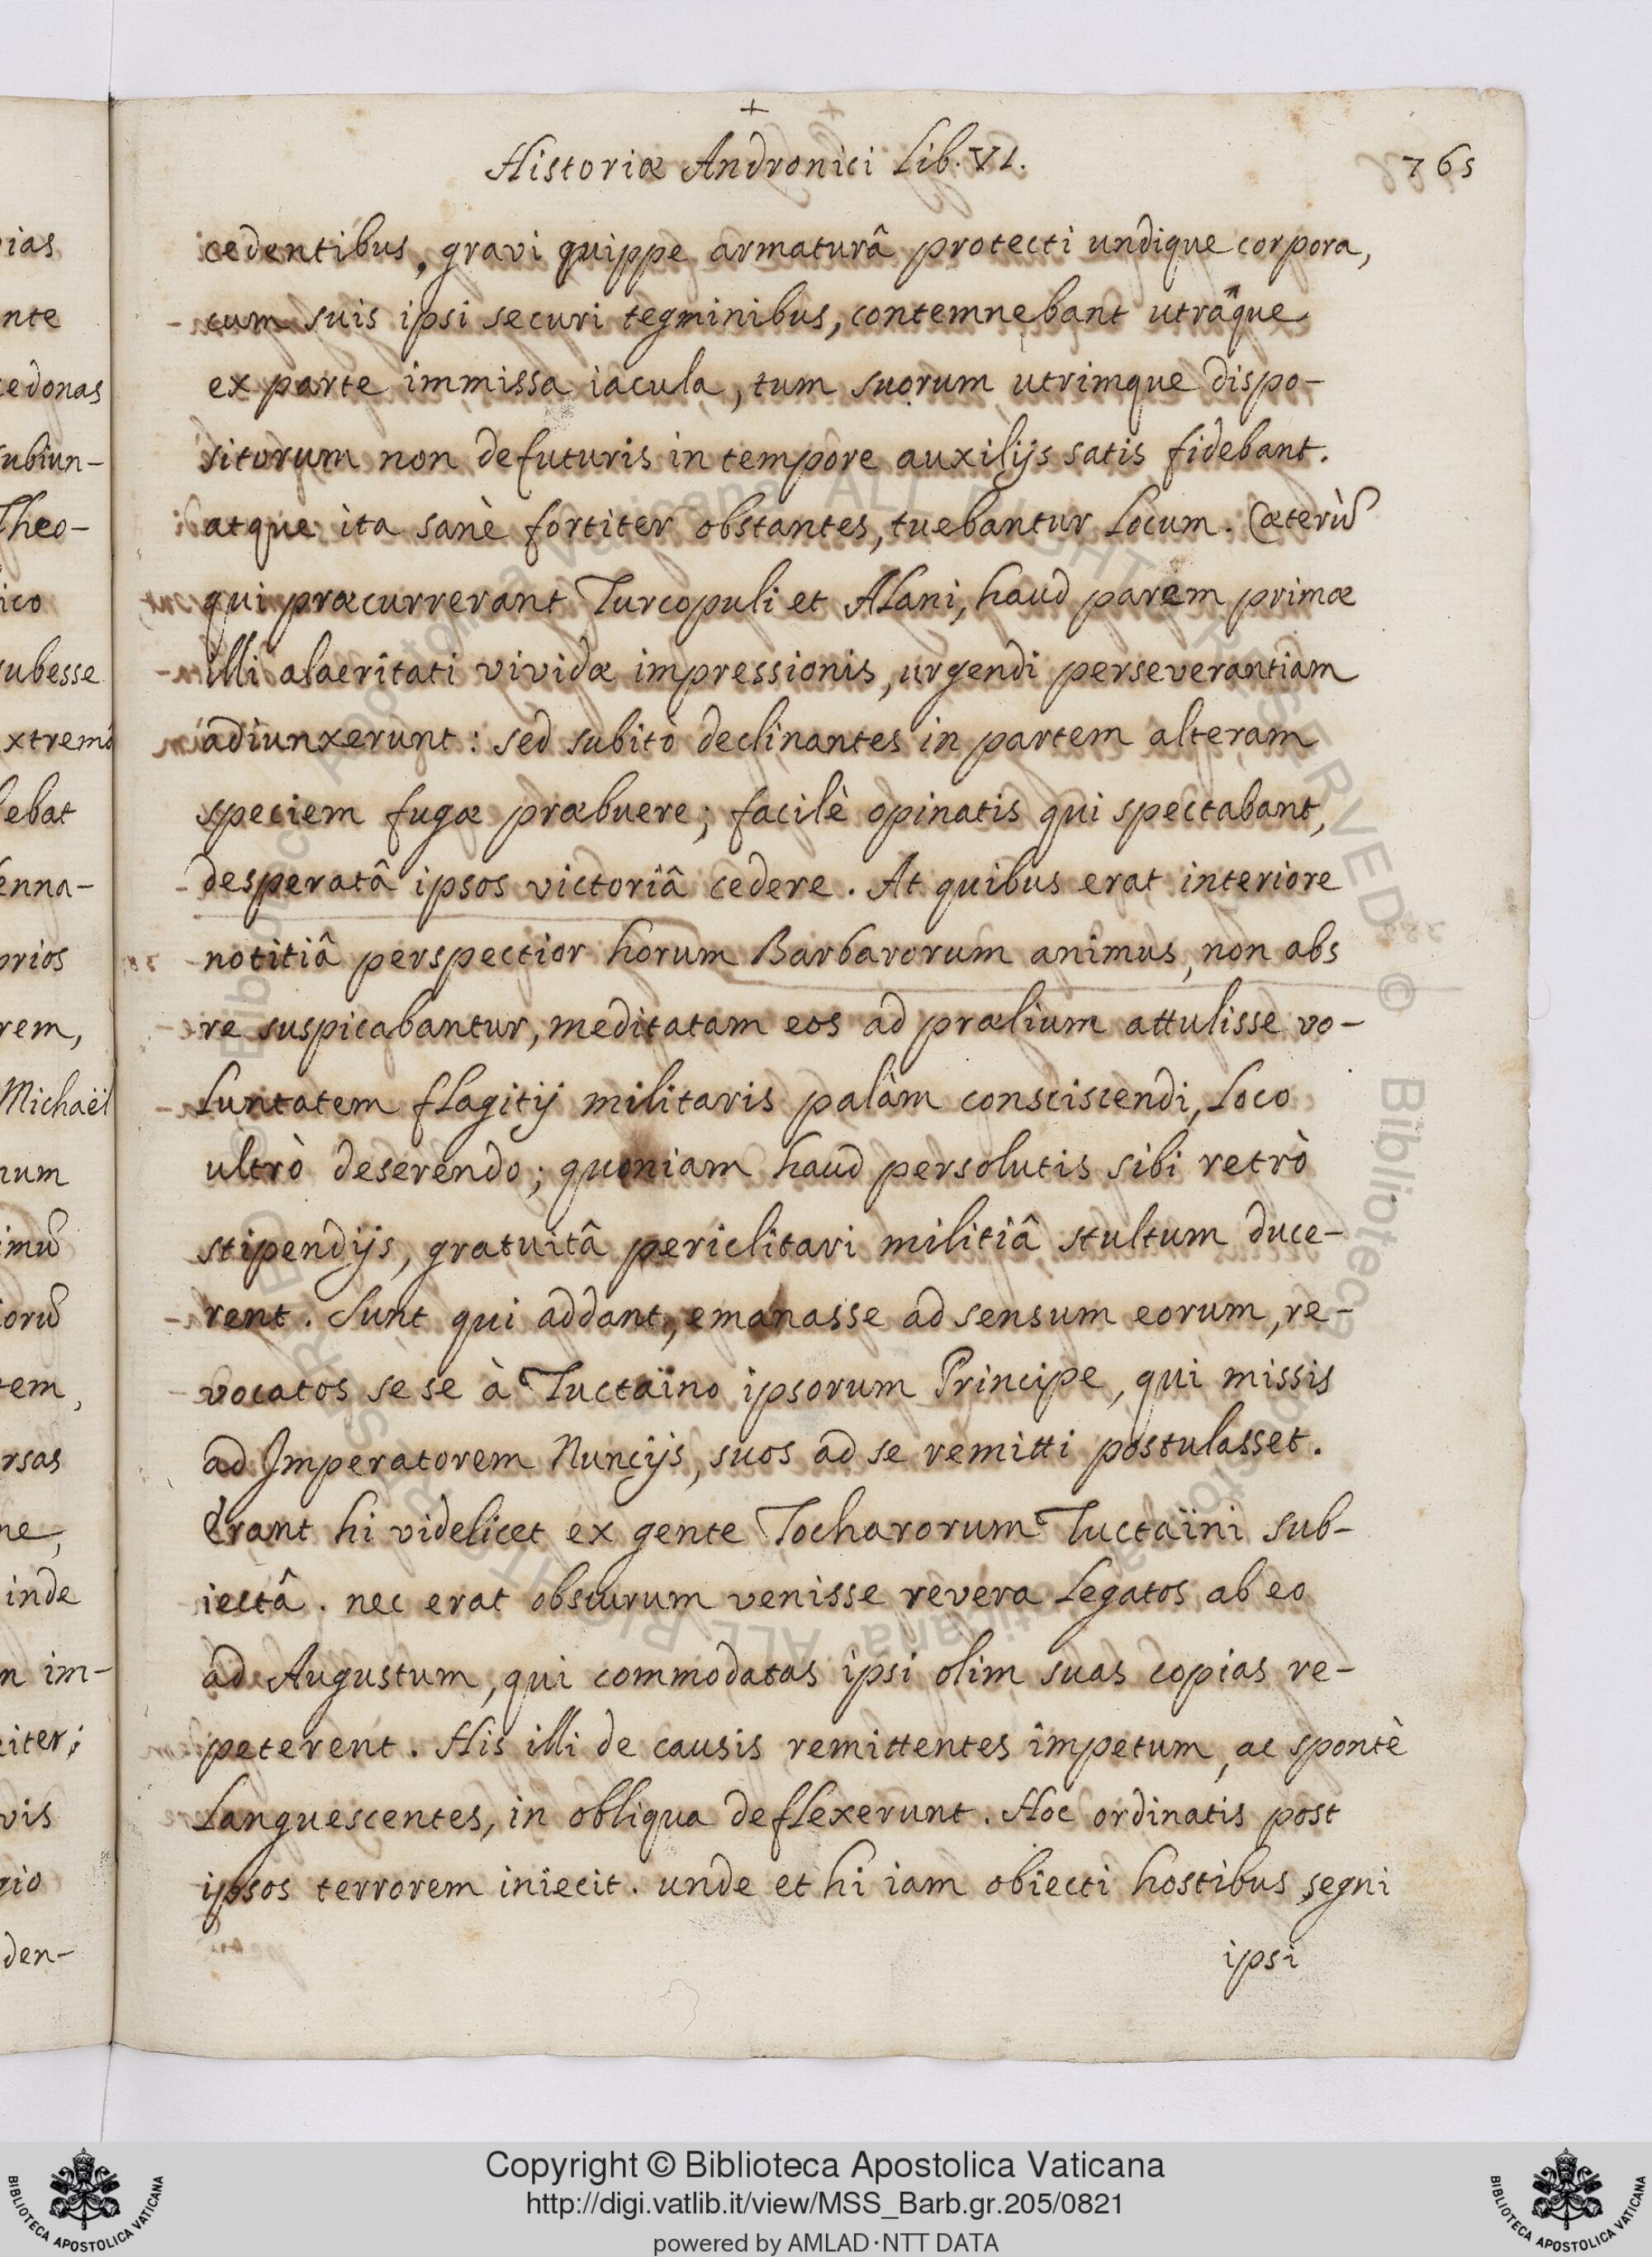 Historiæ Andronici Lib. VI.
765
cedentibus, gravi quippe armaturâ protecti undique corpora,
cum suis ipsi securi tegminibus, contemnebant utrâque
ex parte immissa iacula, tum suorum utrimque dispo-
sitorum non defuturis in tempore auxilijs satis fidebant.
atque ita sanè fortiter obstantes, tuebantur locum. Cæterũ
qui præcurrerant Turcopuli et Alani, haud parem primæ
illi alacritati vividæ impressionis, urgendi perseverantiam
adiunxerunt: sed subitò declinantes in partem alteram
speciem fugæ præbuere; facilè opinatis qui spectabant,
desperatâ ipsos victoriâ cedere. At quibus erat interiore
notitiâ perspectior horum Barbarorum animus, non abs
re suspicabantur, meditatam eos ad prælium attulisse vo-
luntatem flagitij militaris palàm consciscendi, loco
ultrò deserendo; quoniam haud persolutis sibi retrò
stipendijs, gratuitâ periclitari militiâ stultum duce-
rent. Sunt qui addant, emanasse ad sensum eorum, re-
vocatos sese à Tuctaïno ipsorum Principe, qui missis
ad Imperatorem Nuncijs, suos ad se remitti postulasset.
Erant hi videlicet ex gente Tocharorum Tuctaïni sub-
iectâ. nec erat obscurum venisse revera legatos ab eo
ad Augustum, qui commodatas ipsi olim suas copias re-
peterent. His illi de causis remittentes impetum, ac spontè
languescentes, in obliqua deflexerunt. Hoc ordinatis post
ipsos terrorem iniecit. unde et hi iam obiecti hostibus segni
ipsi
ias
nte
edonas
ubiun-
Theo-
ico
subesse
xtremò
ebat
enna-
prios
rem,
Michaël
num
imũ
iorũ
tem,
rsas
ne,
inde
m im-
iter;
vis
gio
den-
Copyright © Biblioteca Apostolica Vaticana
http://digi.vatlib.it/view/MSS_Barb.gr.205/0821
powered by AMLAD·NTT DATA
BIBLIOTECA APOSTOLICA VATICANA
BIBLIOTECA APOSTOLICA VATICANA